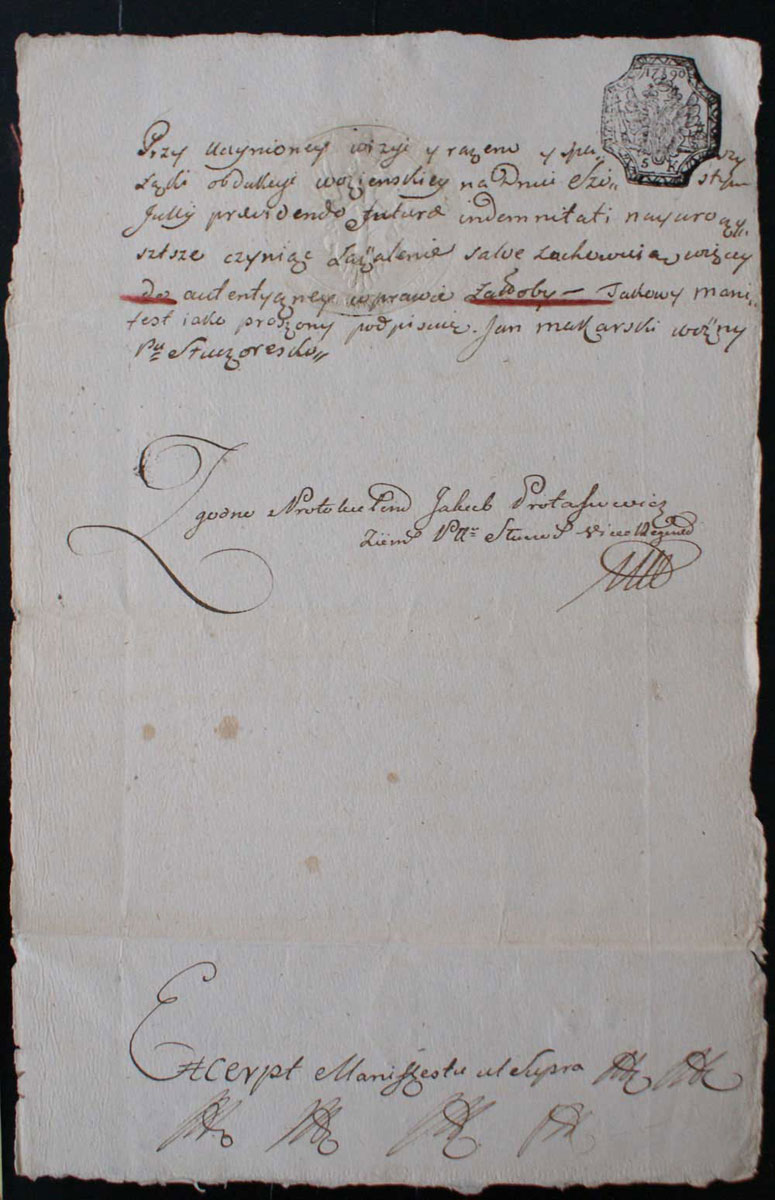 1790
5 K
Przy uczynioney wizyi y razem y spi„
Ządz obdukcyi woźienskiey na Dniu Szó„ stym
Julij prævidendo futuræ indemnitati nayuroczy„
sztsze czyniąc Zażalenie salve zachownia więcey
do autentyczney w prawie Załłoby — Takowy mani„
fest iako proszony podpisuię. Jan Makarski woźny
Ptu
Zgodno z Protokułem Jakub Protasiewicz
Ziem Pttu Vice Regent
Excerpt Manifestu ut Supra